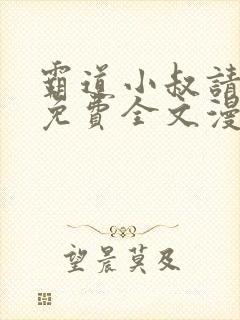 霸道小叔請
免費全文漫
望晨莫及